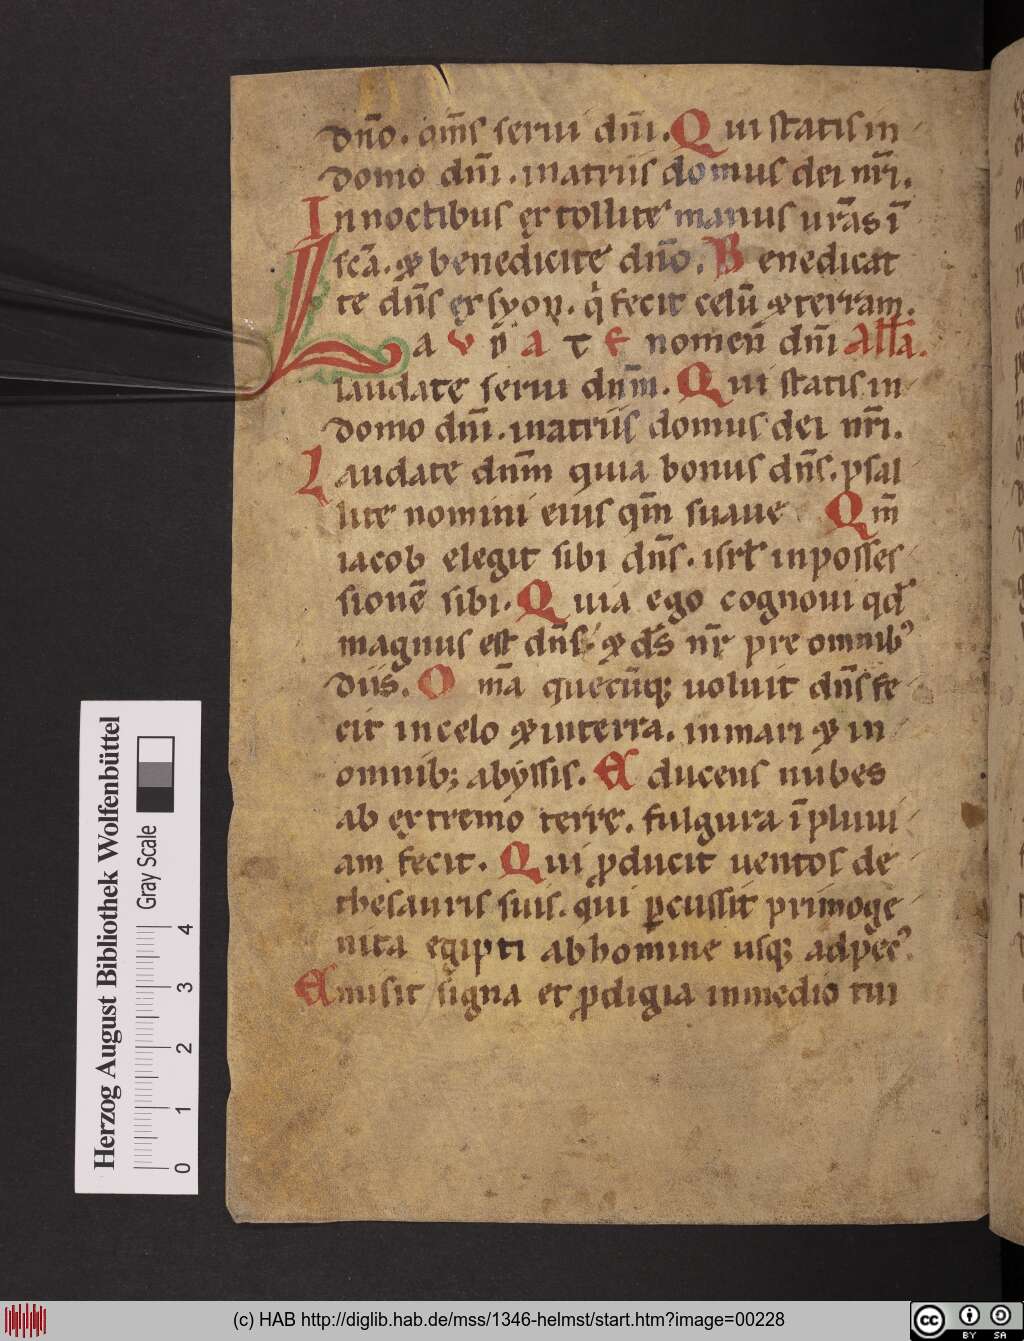 dño. om̄s serui dñi. Qui statis in
domo dñi. inatriis domus dei nr̄i.
In noctibus ertollite manus urās ī
scā. & benedicite dño. Benedicat
te dñs ersyon. q̇ fecit celū & terram.
LAVDATE nomen dñi Allā.
laudate serui dnm̄. Qui statis in
domo dñi. inatriis domus dei nr̄i.
Laudate dnm̄ quia bonus dñs. psal
lite nomini eius qm̄ suaue Qm̄
iacob elegit sibi dñs. isrl̄ inposses
sionē sibi. Quia ego cognoui qd̄
magnus est dñs. & ds̄ nr̄ pre omnib9
diis. Om̄a quecūq; uoluit dñs fe
cit incelo & interra. inmari & in
omnib; abyssis. Educens nubes
ab extremo terre. fulgura ī pluui
am fecit. Qui ꝓducit uentos de
thesauris suis. qui ꝑcussit primoge
nita egipti abhomine usq; adpec9
Emisit signa et ꝓdigia inmedio tui
Herzog August Bibliothek Wolfenbüttel
Gray Scale
0 1 2 3 4
(c) HAB http://diglib.hab.de/mss/1346-helmst/start.htm?image=00228
cc BY SA